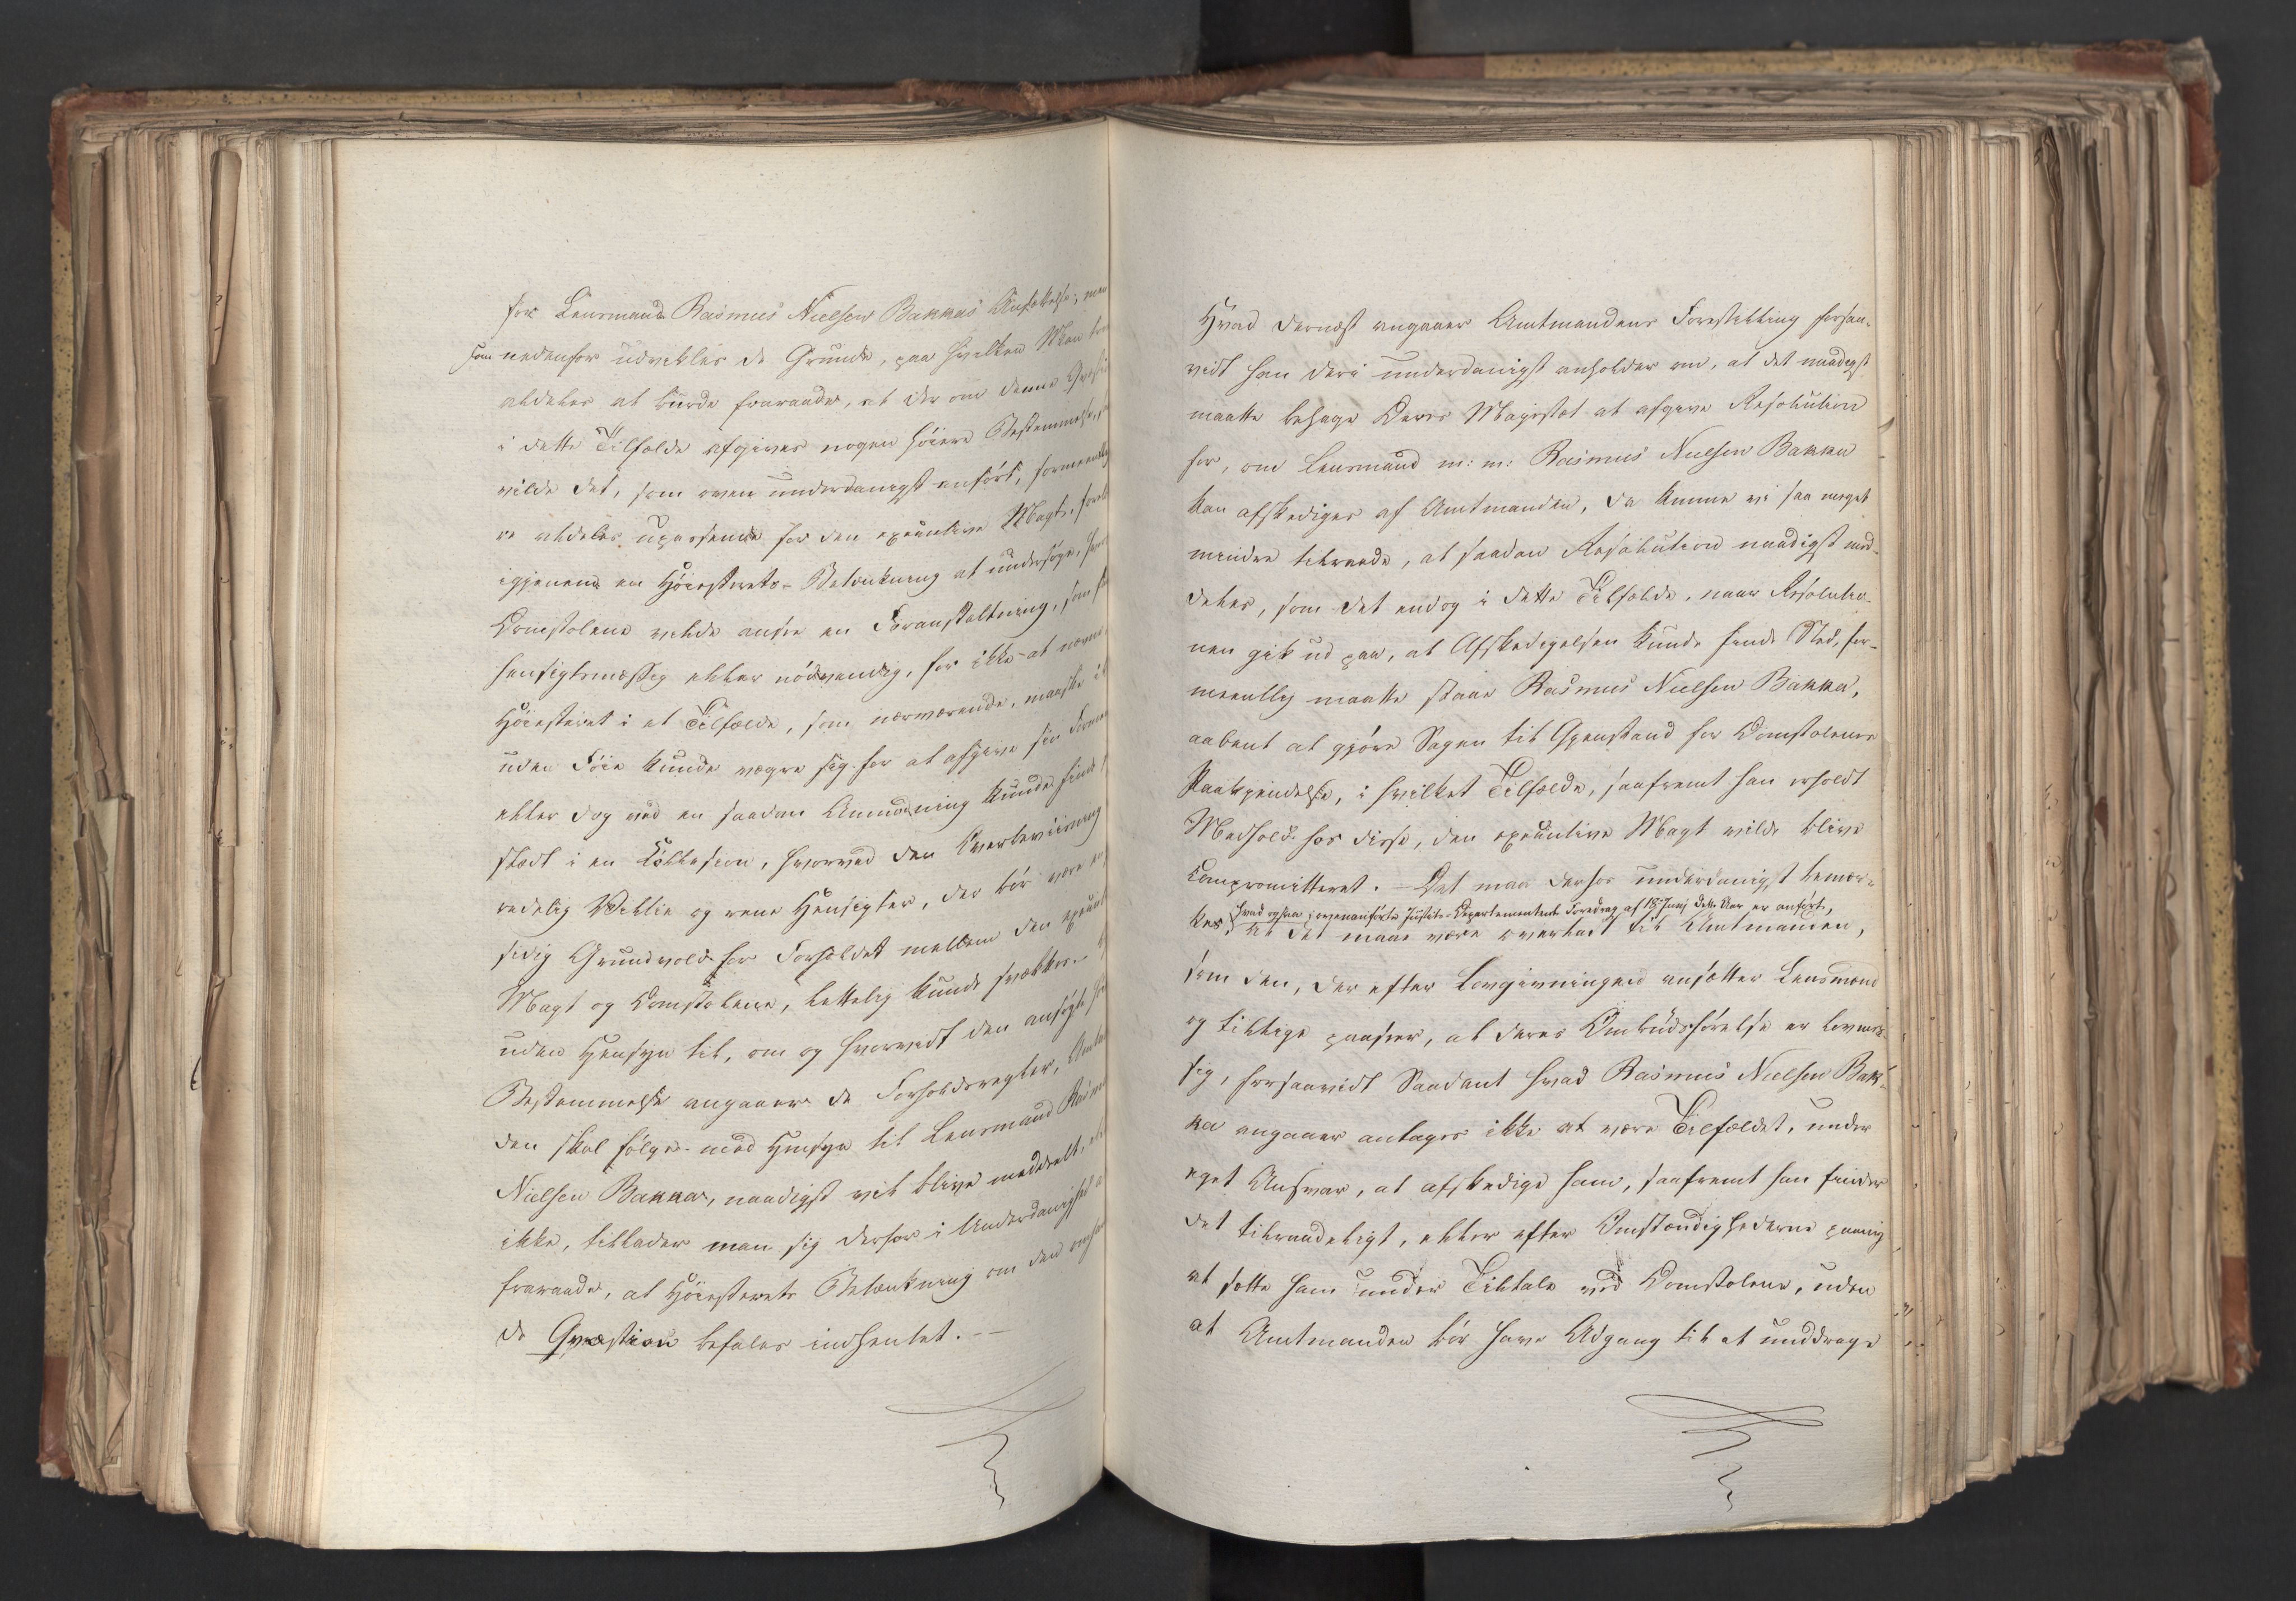 for Lensmand Rasmus Nielsen Bakkas Ansættelse; men
som nedenfor udvikles de Grunde, paa hvilken Man tror
aldeles at burde fraraade, at der om denne
i dette Tilfælde afgives nogen høiere Bestemmelse,
vilde det, som oven underdanigst anført, formeentlig
være aldeles upassende for den executive Magt,
igjennem en Høiesterets-Betænkning at undersøge,
Domstolene vilde ansee en Foranstaltning, som
hensigtsmæssig eller nødvendig, for ikke at nævne
Høiesteret i et Tilfælde, som nærværende, maaskee
uden Føie kunde vægre sig for at afgive sin
eller dog ved en saadan Anmodning kunde finde
stedt i en Collision, hvorved den Overbeviisning
redelig Villie og rene Hensigter, der bør være
sidig Grundvold for Forholdet mellem den
Magt og Domstolene, lettelig kunde svækkes.
uden Hensyn til, om og hvorvidt den ansøgte
Bestemmelse angaaende de Forholdsregler,
den skal følge med Hensyn til Lensmand
Nielsen Bakka, naadigst vil blive meddeelt,
ikke, tillader man sig derfor i Underdanighed
fraraade, at Høiesterets Betænkning om den
de Qvæstion befales indhentet. —
Hvad dernæst angaaer Amtmandens Forestilling forsaa-
vidt han deri underdanigst anholder om, at det naadigst
maatte behage Deres Majestæt at afgive Resolution
for, om Lensmand m: m: Rasmus Nielsen Bakka
kan afskediges af Amtmanden, da kunne vi saa meget
mindre tilraade, at saadan Resolution naadigst med-
deles, som det endog i dette Tilfælde, naar Resolutio-
nen gik ud paa, at Afskedigelsen kunde finde Sted, for-
meentlig maatte staae Rasmus Nielsen Bakka,
aabent at gjøre Sagen til Gjenstand for Domstolenes
Paakjendelse, i hvilket Tilfælde, saafremt han erholdt
Medhold hos disse, den executive Magt vilde blive
compromitteret. — Det maa derfor underdanigst bemær-
hvad ogsaa i ovenanførte Justits-Departementets Foredrag af 18 Juni dette Aar er anført,
kes, at det maae være overladt til Amtmanden,
som den, der efter Lovgivningen ansætter Lensmænd
og tillige paaseer, at deres Ombudsførelse er lovmæs-
sig, forsaavidt Saadant hvad Rasmus Nielsen Bak-
ka angaaer antages ikke at være Tilfældet, under
eget Ansvar, at afskedige ham, saafremt han finder
det tilraadeligt, eller efter Omstændighederne paany
at sætte ham under Tiltale ved Domstolene, uden
at Amtmanden bør have Adgang til at unddrage